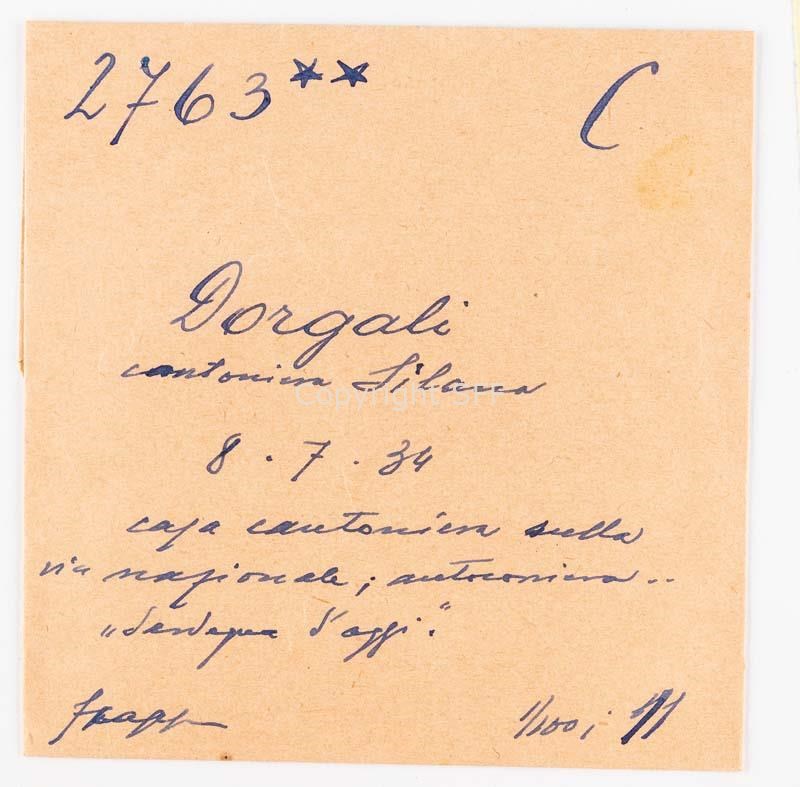 2763** C
Dorgali
cantoniera Silana
Copyright SFF
8.7.34
casa cantoniera sulla
via nazionale; autocorriera..
„Sardegna d'oggi."
1/100;